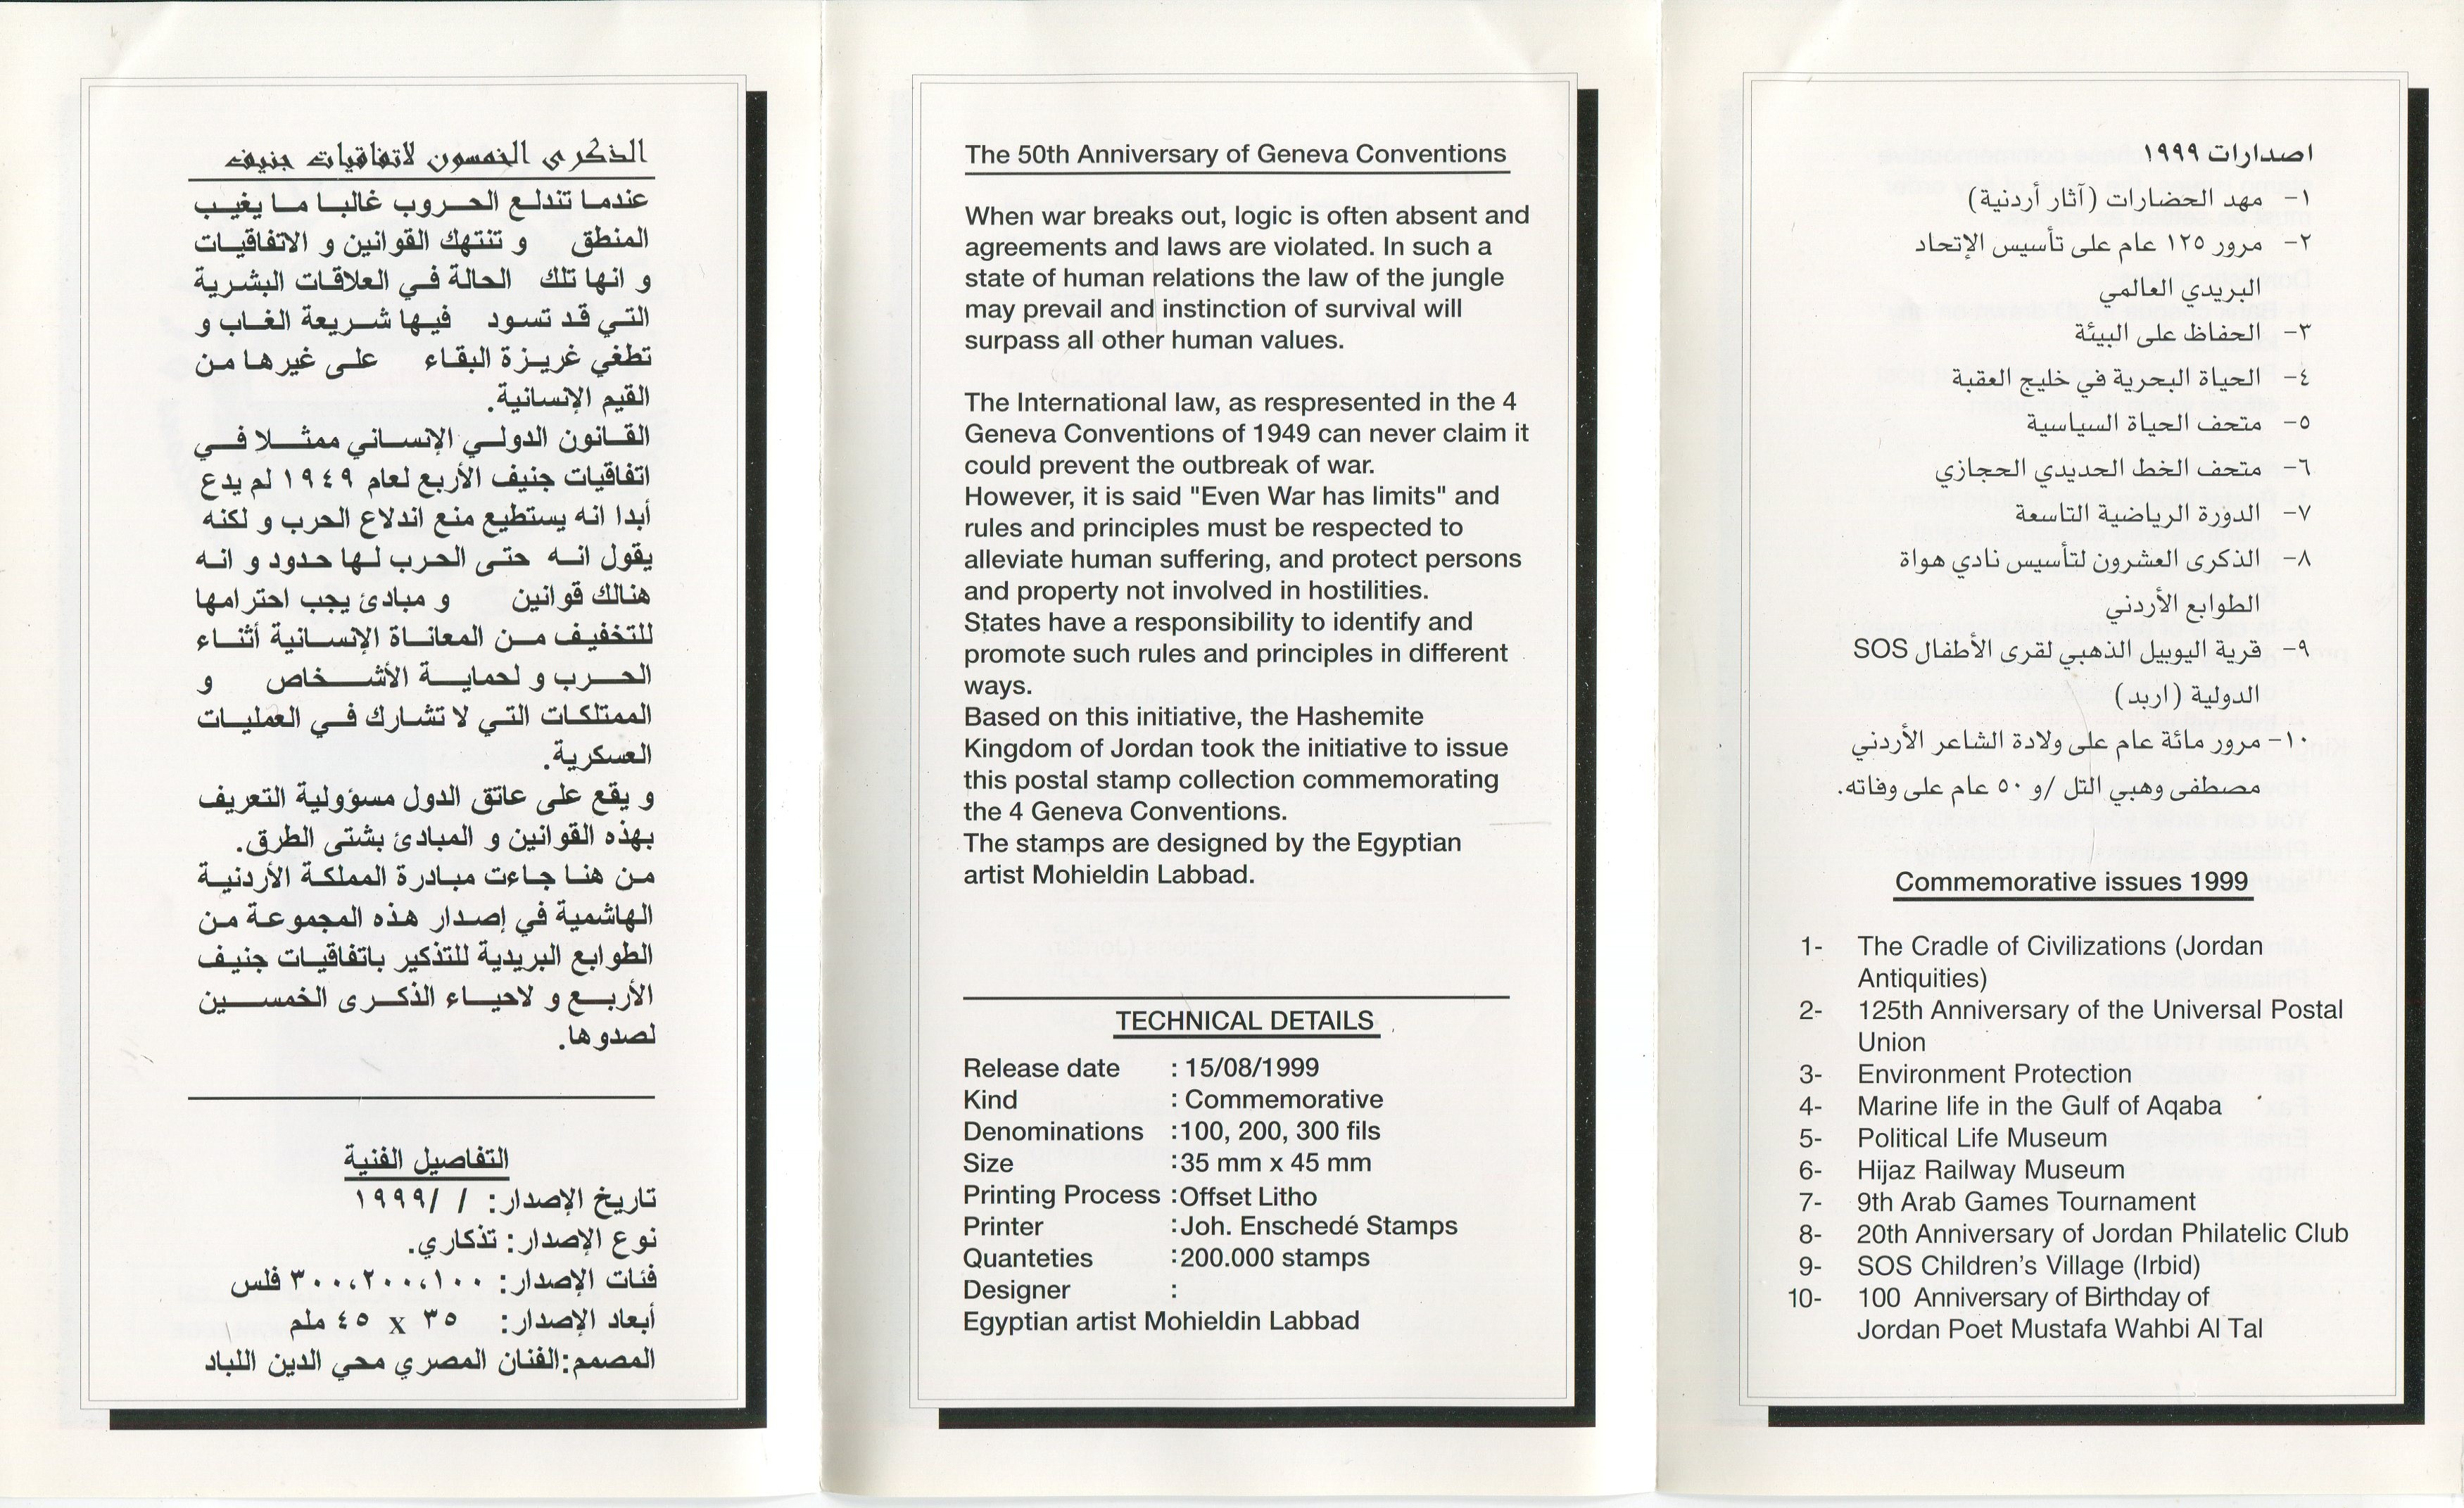 الذكرى الخمسون لاتفاقيات جنيف
عندما تندلع الحروب غالبا ما يغيب
المنطق و تنتهك القوانين و الاتفاقيات
و انها تلك الحالة في العلاقات البشرية
التي قد تسود فيها شريعة الغاب و
تطغي غريزة البقاء على غيرها من
القيم الإنسانية.
القانون الدولي الإنساني ممثلا في
اتفاقيات جنيف الأربع لعام ١٩٤٩ لم يدع
أبدا انه يستطيع منع اندلاع الحرب و لكنه
يقول انه حتى الحرب لها حدود و انه
هنالك قوانين و مبادئ يجب احترامها
للتخفيف من المعاناة الإنسانية أثناء
الحرب و لحماية الأشخاص و
الممتلكات التي لا تشارك في العمليات
العسكرية.
و يقع على عاتق الدول مسؤولية التعريف
بهذه القوانين و المبادئ بشتى الطرق.
من هنا جاءت مبادرة المملكة الأردنية
الهاشمية في إصدار هذه المجموعة من
الطوابع البريدية للتذكير باتفاقيات جنيف
الأربع و لاحياء الذكرى الخمسين
لصدوها.
التفاصيل الفنية
تاريخ الإصدار: / /١٩٩٩
نوع الإصدار: تذكاري.
فئات الإصدار: ١٠٠،٢٠٠،٣٠٠ فلس
أبعاد الإصدار: ٣٥ x ٤٥ ملم
المصمم:الفنان المصري محي الدين اللباد
The 50th Anniversary of Geneva Conventions
When war breaks out, logic is often absent and
agreements and laws are violated. In such a
state of human relations the law of the jungle
may prevail and instinction of survival will
surpass all other human values.
The International law, as respresented in the 4
Geneva Conventions of 1949 can never claim it
could prevent the outbreak of war.
However, it is said "Even War has limits" and
rules and principles must be respected to
alleviate human suffering, and protect persons
and property not involved in hostilities.
States have a responsibility to identify and
promote such rules and principles in different
ways.
Based on this initiative, the Hashemite
Kingdom of Jordan took the initiative to issue
this postal stamp collection commemorating
the 4 Geneva Conventions.
The stamps are designed by the Egyptian
artist Mohieldin Labbad.
TECHNICAL DETAILS
Release date : 15/08/1999
Kind : Commemorative
Denominations :100, 200, 300 fils
Size :35 mm x 45 mm
Printing Process :Offset Litho
Printer :Joh. Enschedé Stamps
Quanteties :200.000 stamps
Designer :
Egyptian artist Mohieldin Labbad
اصدارات ١٩٩٩
١- مهد الحضارات (آثار أردنية)
٢- مرور ١٢٥ عام على تأسيس الإتحاد
البريدي العالمي
٣- الحفاظ على البيئة
٤- الحياة البحرية في خليج العقبة
٥- متحف الحياة السياسية
٦- متحف الخط الحديدي الحجازي
٧- الدورة الرياضية التاسعة
٨- الذكرى العشرون لتأسيس نادي هواة
الطوابع الأردني
٩- قرية اليوبيل الذهبي لقرى الأطفال SOS
الدولية (اربد)
١٠- مرور مائة عام على ولادة الشاعر الأردني
مصطفى وهبي التل /و ٥٠ عام على وفاته.
Commemorative issues 1999
1- The Cradle of Civilizations (Jordan
Antiquities)
2- 125th Anniversary of the Universal Postal
Union
3- Environment Protection
4- Marine life in the Gulf of Aqaba
5- Political Life Museum
6- Hijaz Railway Museum
7- 9th Arab Games Tournament
8- 20th Anniversary of Jordan Philatelic Club
9- SOS Children's Village (Irbid)
10- 100 Anniversary of Birthday of
Jordan Poet Mustafa Wahbi Al Tal